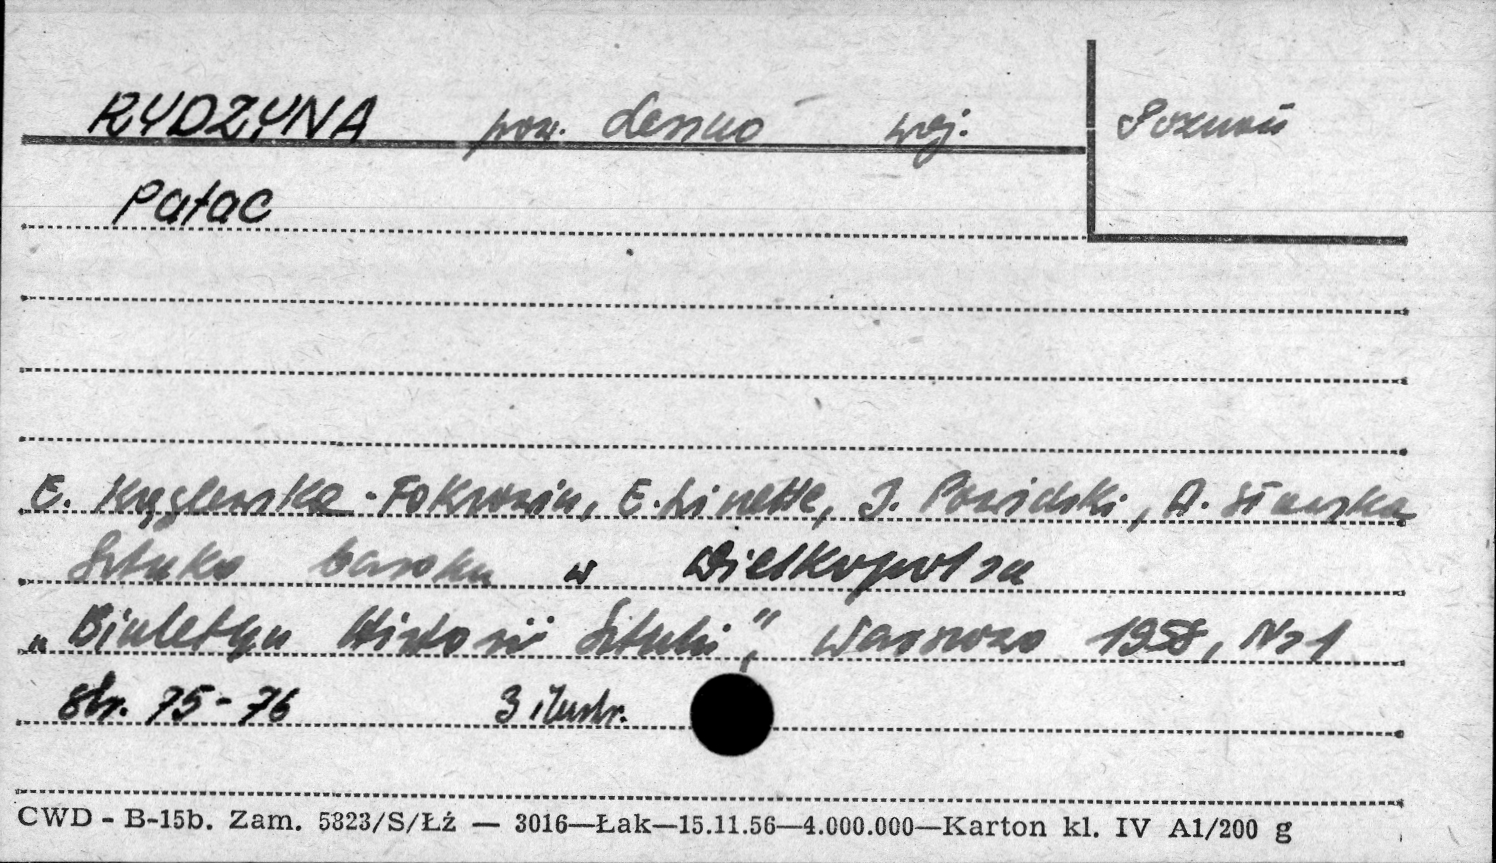 RYDZYNA pow. Leszno woj. Poznań
Pałac
E. Kręglewska-Fokrowin, E. Linette, J. Powidzki, A. Sławska
Sztuka baroku w Wielkopolsce
„Biuletyn Historii Sztuki", Warszawa 1958, Nr 1
str. 75-76 3 ilustr.
CWD - B-15b. Zam. 5323/S/Łż — 3016—Łak—15.11.56—4.000.000—Karton kl. IV A1/200 g